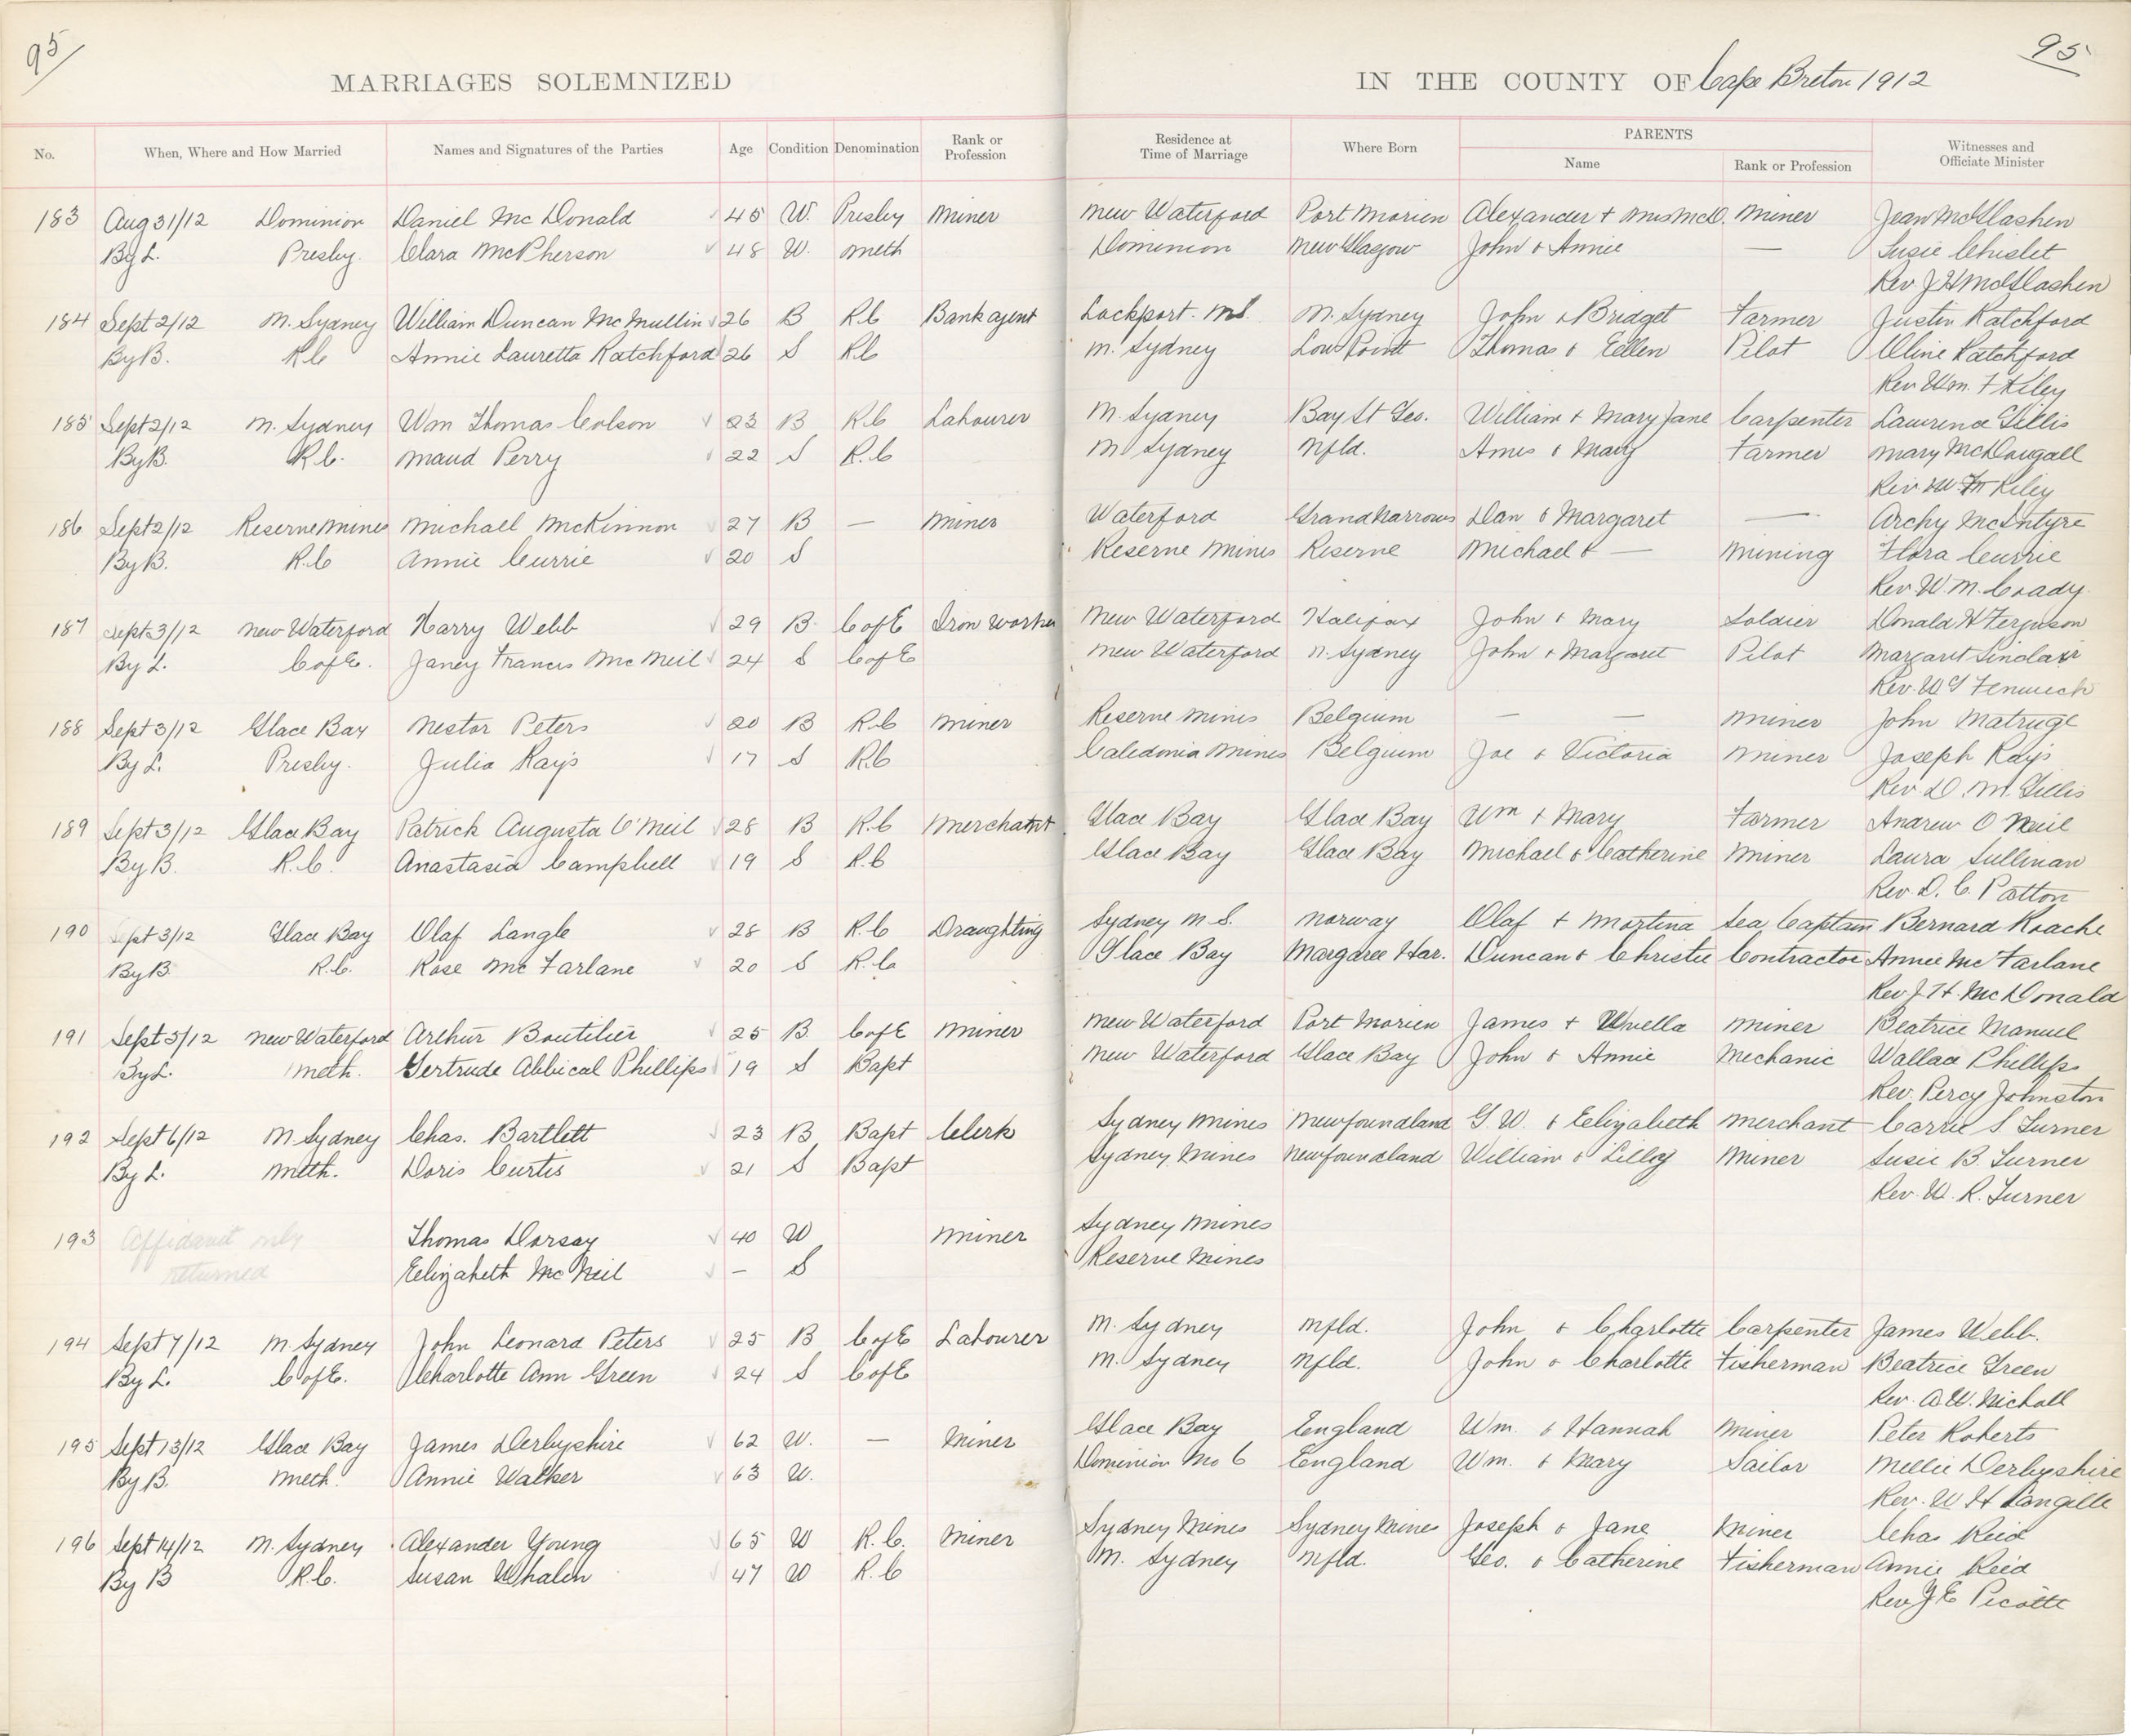 95 95
MARRIAGES SOLEMNIZED IN THE COUNTY OF Cape Breton 1912
No. When, Where and How Married Names and Signatures of the Parties Age Condition Denomination Rank or Profession Residence at Time of Marriage Where Born PARENTS Name Rank or Profession Witnesses and Officiate Minister
183 Aug 31/12 Dominion Daniel McDonald 45 W. Presby Miner New Waterford Port Morien Alexander + Mrs McD. Miner Jean McGlashen
By L. Presby. Clara McPherson 48 W. Meth Dominion New Glasgow John & Annie — Susie Chislet
Rev J H McGlashen
184 Sept 2/12 N. Sydney William Duncan McMullin 26 B R.C Bank agent Lockport. N.S. N. Sydney John & Bridget Farmer Justin Ratchford
By B. R.C Annie Lauretta Ratchford 26 S R.C N. Sydney Low Point Thomas & Eellen Pilot Oline Ratchford
Rev Wm. F Kiley
185 Sept 2/12 N. Sydney Wm Thomas Colson 23 B R.C Labourer N. Sydney Bay St Geo. William + Mary Jane Carpenter Laurence Gillis
By B. R.C. Maud Perry 22 S R.C N Sydney Nfld. Ames & Mary Farmer Mary McDougall
Rev Kiley
186 Sept 2/12 Reserve Mines Michael McKinnon 27 B — Miner Waterford Grand Narrows Dan & Margaret — Archy McIntyre
By B. R.C Annie Currie 20 S Reserve Mines Reserve Michael & — Mining Flora Currie
Rev W. M. Coady.
187 Sept 3/12 New Waterford Harry Webb 29 B. C of E Iron worker New Waterford Halifax John & Mary Soldier Donald H Ferguson
By L. C of E. Janey Francis McNeil 24 S C of E New Waterford N. Sydney John & Margaret Pilot Margaret Sinclair
Rev. W G Fenwick
188 Sept 3/12 Glace Bay Nestor Peters 20 B R.C Miner Reserve Mines Belgium — — Miner John Matruge
By L. Presby. Julia Rays 17 S R.C Caledonia Mines Belgium Joe & Victoria Miner Joseph Rays
Rev D. M. Gillis
189 Sept 3/12 Glace Bay Patrick Augusta O'Neil 28 B R.C Merchant Glace Bay Glace Bay Wm + Mary Farmer Andrew O Neil
By B. R.C. Anastasia Campbell 19 S R.C Glace Bay Glace Bay Michael & Catherine Miner Laura Sullivan
Rev. D. C. Patton
190 Sept 3/12 Glace Bay Olaf Langle 28 B R.C Draughting Sydney N. S. Norway Olaf + Martina Sea Captain Bernard Roache
By B. R.C. Rose McFarlane 20 S R.C Glace Bay Margaree Har. Duncan & Christie Contractor Annie McFarlane
Rev. J. H. McDonald
191 Sept 5/12 New Waterford Arthur Boutilier 25 B. C of E Miner New Waterford Port Morien James + Miner Beatrice Manuel
By L. Meth. Gertrude Abbical Phillips 19 S Bapt New Waterford Glace Bay John & Annie Mechanic Wallace Phillips
Rev. Percy Johnston
192 Sept 6/12 N. Sydney Chas. Bartlett 23 B Bapt Clerk Sydney Mines Newfoundland G. W. & Eelizabeth Merchant Carrie S Turner
By L. Meth. Doris Curtis 21 S Bapt Sydney Mines Newfoundland William & Lilly Miner Susie B. Turner
Rev. W. R. Turner
193 Affidavit only Thomas Dorsay 40 W Miner Sydney Mines
returned Eelizabeth McNeil — S Reserve Mines
194 Sept 7/12 N. Sydney John Leonard Peters 25 B C of E Labourer N. Sydney Nfld. John & Charlotte Carpenter James Webb.
By L. C of E. Charlotte Ann Green 24 S C of E N. Sydney Nfld. John & Charlotte Fisherman Beatrice Green
Rev. A. W. Nicholl
195 Sept 13/12 Glace Bay James Derbyshire 62 W. — Miner Glace Bay England Wm. & Hannah Miner Peter Roberts
By B. Meth. Annie Walker 63 W. Dominion No 6 England Wm. & Mary Sailor Mellie Derbyshire
Rev. W H Langille
196 Sept 14/12 N. Sydney Alexander Young 65 W R.C. Miner Sydney Mines Sydney Mines Joseph & Jane Miner Chas Reid
By B R.C. Susan Whalen 47 W R.C N. Sydney Nfld. Geo. & Catherine Fisherman Annie Reid
Rev J E Picotte